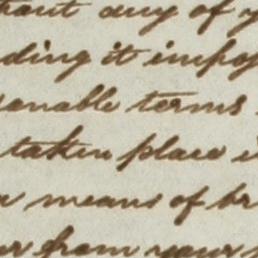 any of
ding it impos
sonable terms
taken place
means of br
from your